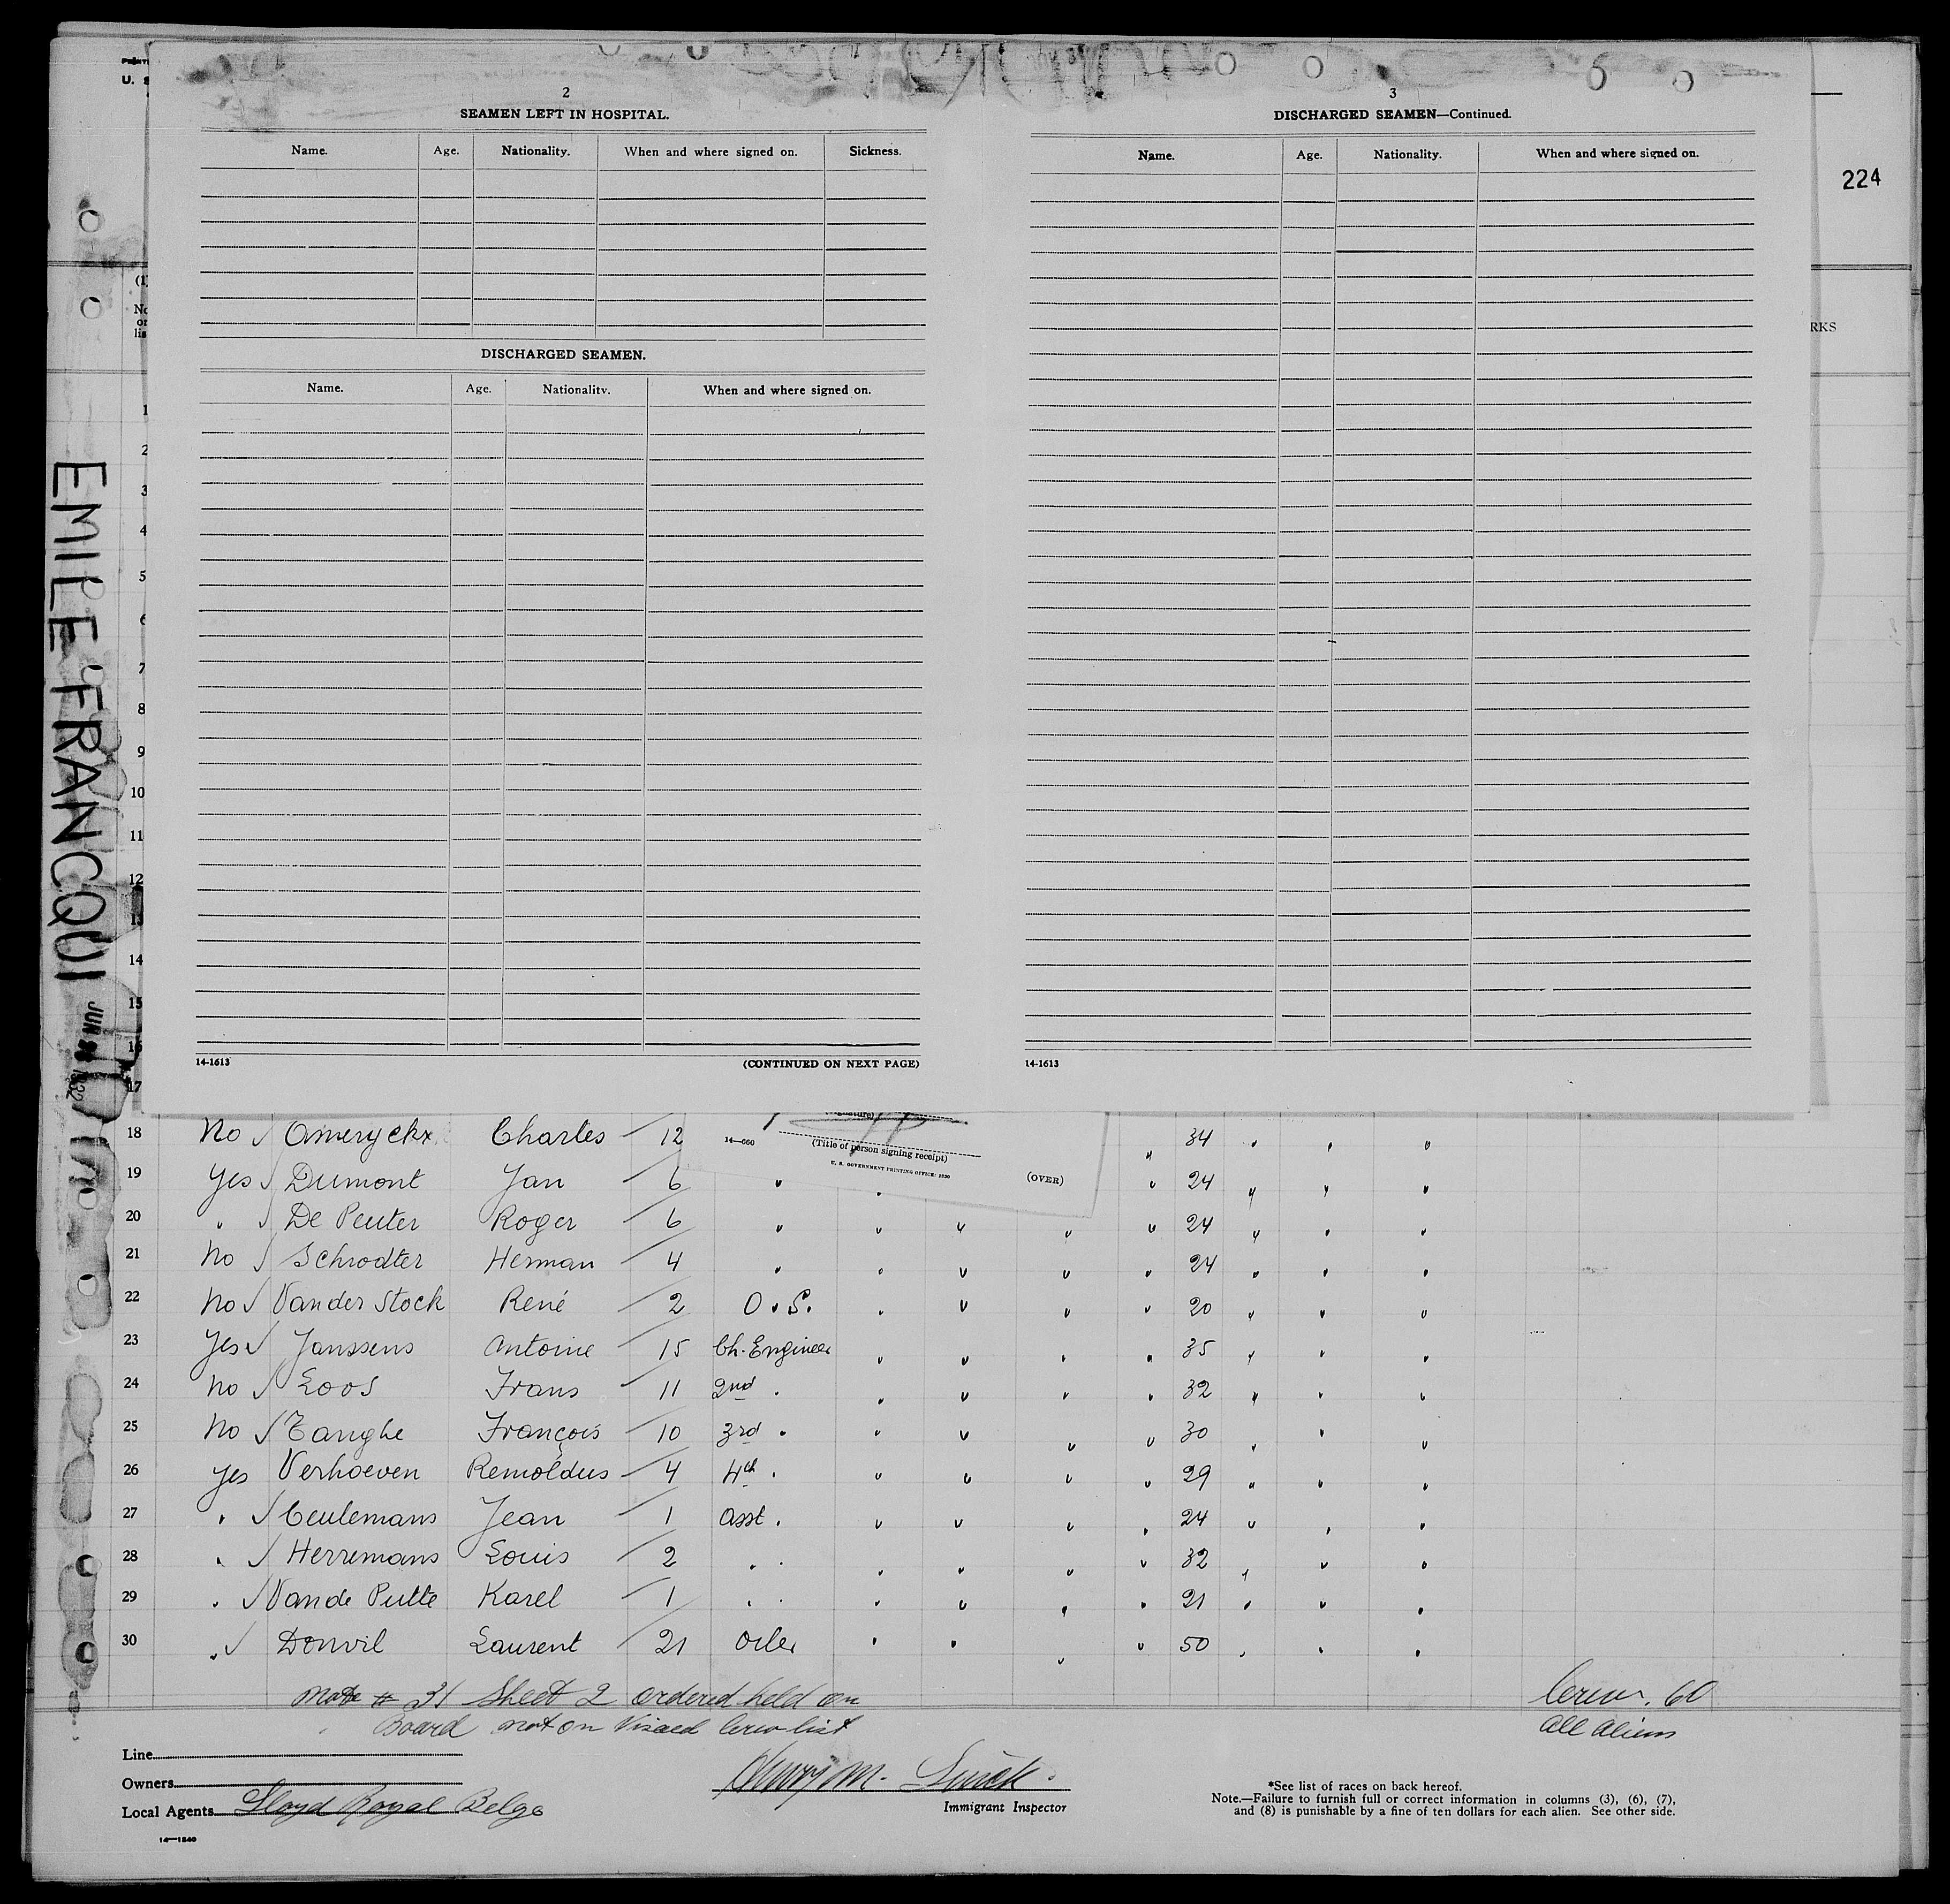 2
SEAMEN LEFT IN HOSPITAL.
Name. Age. Nationality. When and where signed on. Sickness.
DISCHARGED SEAMEN.
Name. Age. Nationality. When and where signed on.
14-1613 (CONTINUED ON NEXT PAGE)
3
DISCHARGED SEAMEN—Continued.
Name. Age. Nationality. When and where signed on.
14-1613
224
RKS
U. S
(1)
No
or
lis
1
2
3
4
5
6
7
8
9
10
11
12
13
14
15
16
17
EMILE FRANCQUI
JUN
14—660
(Title of person signing receipt)
U. S. GOVERNMENT PRINTING OFFICE: 1930
(OVER)
18 No ✓ Omeryckx Charles 12 34
19 Yes ✓ Dumont Jan 6 " 24
20 " ✓ De Peuter Roger 6 " 24
21 No ✓ Schrodter Herman 4 " 24
22 No ✓ Vander Stock René 2 O.S. 20
23 Yes ✓ Janssens Antoine 15 Ch. Engineer 35
24 No ✓ Loos Frans 11 2nd " 32
25 No ✓ Tanghe François 10 3rd " 30
26 Yes Verhoeven Remoldus 4 4th " 29
27 " ✓ Ceulemans Jean 1 Asst. 24
28 " ✓ Herremans Louis 2 " " 32
29 " ✓ Vande Putte Karel 1 " " 21
30 " ✓ Donvil Laurent 21 Oiler 50
Note # 31 Sheet 2 ordered held on
Board not on Visaed Crew list
Crew. 60
All Aliens
Line
Owners
Local Agents Lloyd Royal Belge
14—1240
Henry M.
Immigrant Inspector
*See list of races on back hereof.
Note.—Failure to furnish full or correct information in columns (3), (6), (7),
and (8) is punishable by a fine of ten dollars for each alien. See other side.